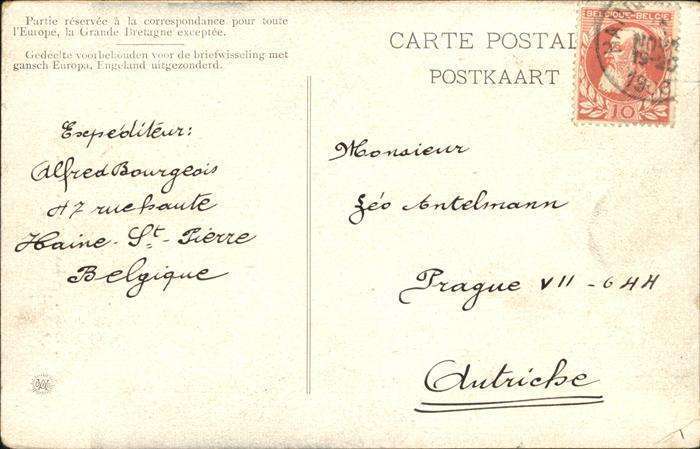 Partie réservée à la correspondance pour toute
l'Europe, la Grande Bretagne exceptée.
Gedeelte voorbehouden voor de briefwisseling met
gansch Europa, Engeland uitgezonderd.
CARTE POSTAL
POSTKAART
BELGIQUE-BELGIE
10
Expéditeur:
Alfred Bourgeois
47 rue haute
Haine-St-Pierre
Belgique
Monsieur
Léo Antelmann
Prague VII - 644
Autriche